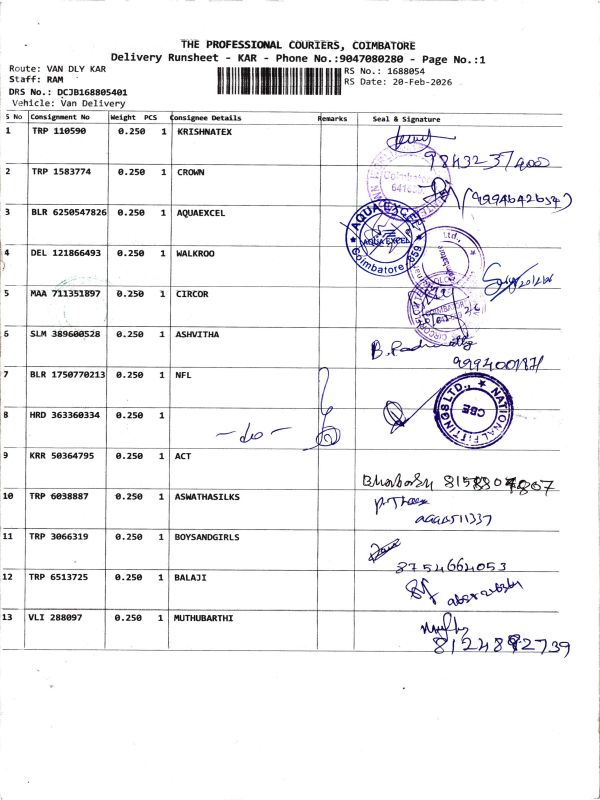 THE PROFESSIONAL COURIERS, COIMBATORE
Delivery Runsheet - KAR - Phone No.:9047080280 - Page No.:1
Route: VAN DLY KAR
RS No.: 1688054
Staff: RAM
RS Date: 20-Feb-2026
DRS No.: DCJB168805401
Vehicle: Van Delivery
S No Consignment No Weight PCS Consignee Details Remarks Seal & Signature
1 TRP 110590 0.250 1 KRISHNATEX
2 TRP 1583774 0.250 1 CROWN
Coimbatore
3 BLR 6250547826 0.250 1 AQUAEXCEL
AQUA EXCEL
AQUA EXCEL
Coimbatore
4 DEL 121866493 0.250 1 WALKROO
5 MAA 711351897 0.250 1 CIRCOR
6 SLM 389600528 0.250 1 ASHVITHA
7 BLR 1750770213 0.250 1 NFL
NATIONAL FITTINGS LTD.,
CBE
8 HRD 363360334 0.250 1
-do-
9 KRR 50364795 0.250 1 ACT
10 TRP 6038887 0.250 1 ASWATHASILKS
11 TRP 3066319 0.250 1 BOYSANDGIRLS
8754664053
12 TRP 6513725 0.250 1 BALAJI
13 VLI 288097 0.250 1 MUTHUBARTHI